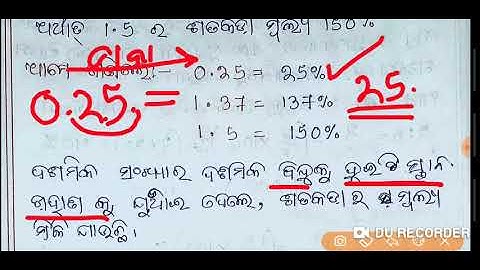 ଅର୍ଥାତ୍ 1.5 ର ଶତକଡ଼ା ମୂଲ୍ୟ 150%
ଡାହା
ଆମେ ଜାଣିଲେ:- 0.25 = 25%
0.25. = 1.37 = 137% 25.
1.5 = 150%
ଦଶମିକ ସଂଖ୍ୟାର ଦଶମିକ ବିନ୍ଦୁକୁ ଦୁଇଟି ସ୍ଥାନ
ଡାହାଣ କୁ ଘୁଞ୍ଚାଇ ଦେଲେ, ଶତକଡ଼ା ର ମୂଲ୍ୟ
ମିଳି ଯାଉଛି।
DU RECORDER